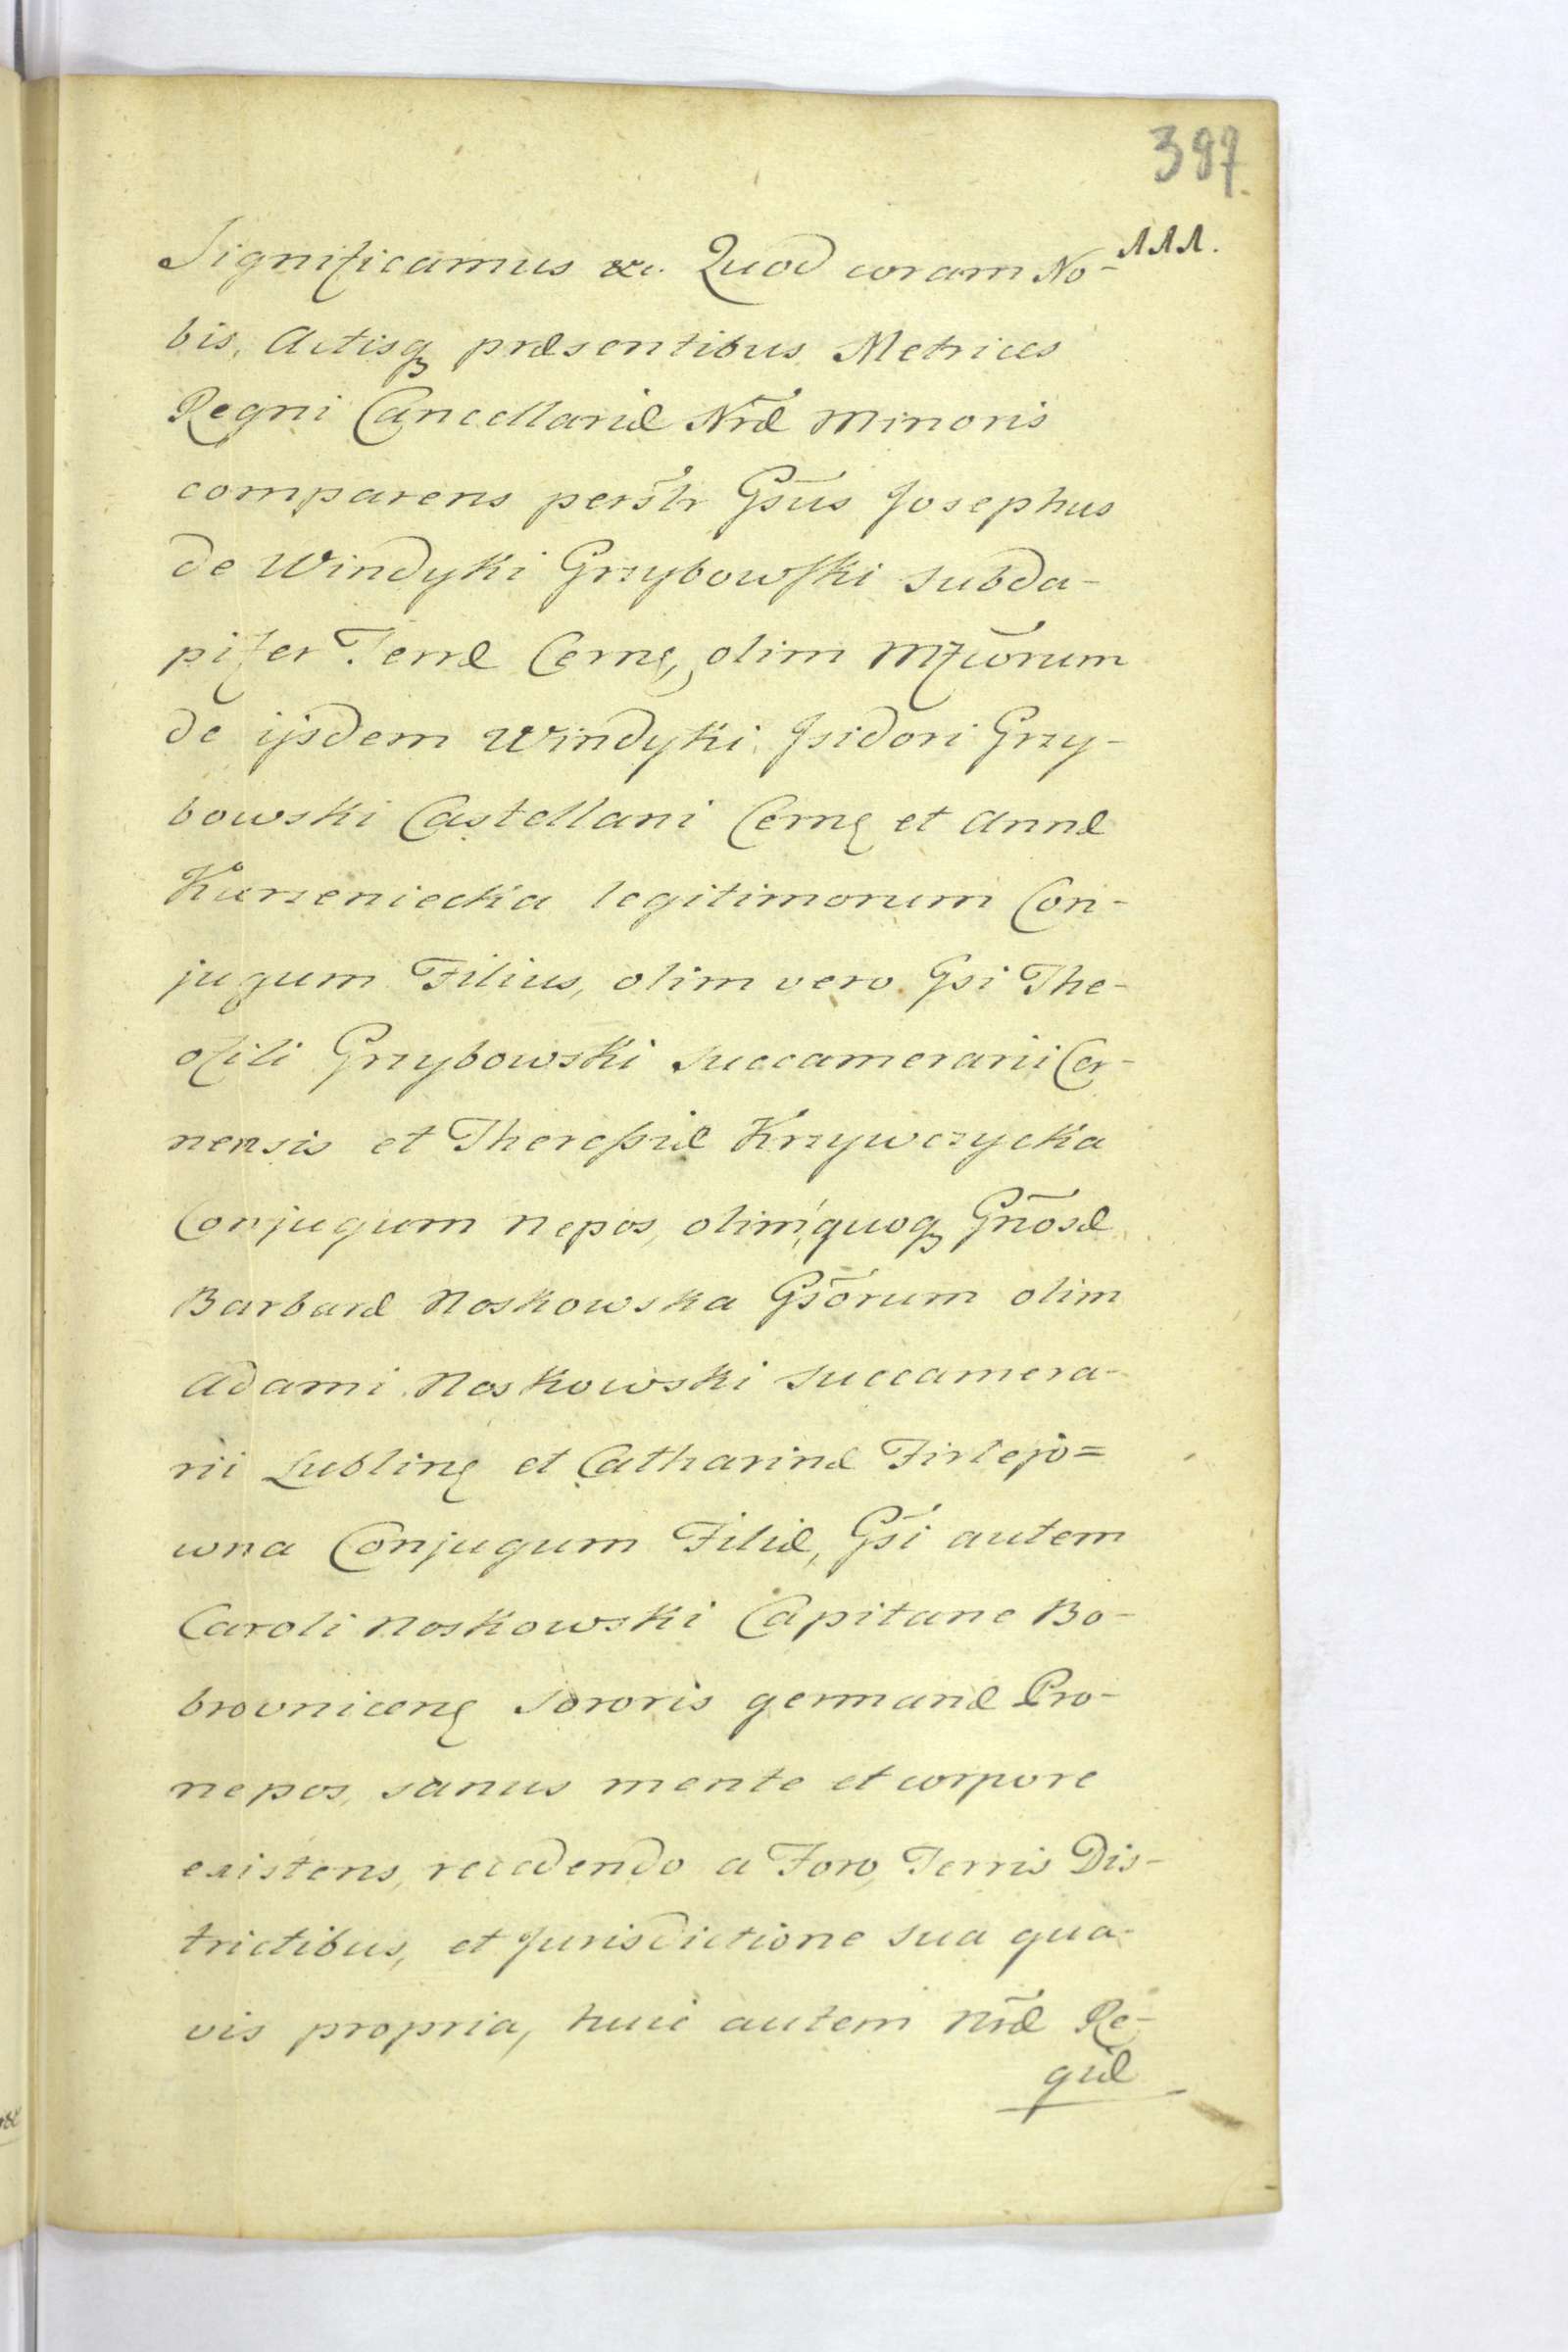 397.
111.
Significamus &c. Quod coram No-
bis, Actisq₃ præsentibus Metrices
Regni Cancellariæ Nr̃æ Minoris
comparens persr̃ Gsũs Josephus
de Windyki Grzybowski Subda-
pifer Terræ Cernę, olim Mfcõrum
de ijsdem Windyki Isidori Grzy-
bowski Castellani Cernę et Annæ
Kurzeniecka legitimorum Con-
jugum Filius, olim vero Gsi The-
ofili Grzybowski Succamerarii Cer-
nensis et Theressiæ Krzywczycka
Conjugum nepos, olim quoq₃ Gnõsæ
Barbaræ Noskowska Gsõrum olim
Adami Noskowski Succamera-
rii Lublinę et Catharinæ Firlejo=
wna Conjugum Filiæ, Gsĩ autem
Caroli Noskowski Capitane Bo-
brovnicenę Sororis germanæ Pro-
nepos, sanus mente et corpore
existens, recedendo a Foro, Terris Dis-
trictibus, et Jurisdictione sua qua-
vis propria, huic autem Nr̃æ Re-
giæ